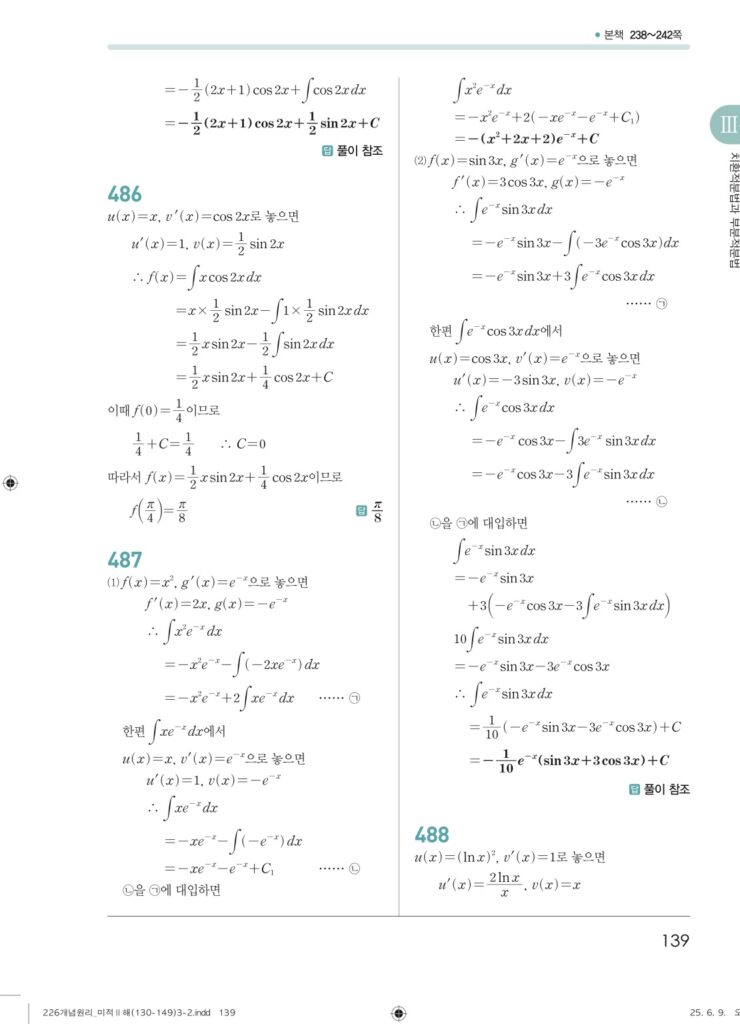 • 본책 238~242쪽
=-\frac{1}{2}(2x+1)cos 2x+∫cos 2x dx
=-\frac{1}{2}(2x+1)cos 2x+\frac{1}{2}sin 2x+C
답 풀이 참조
486
u(x)=x, v′(x)=cos 2x로 놓으면
u′(x)=1, v(x)=\frac{1}{2}sin 2x
∴ f(x)=∫x cos 2x dx
=x×\frac{1}{2}sin 2x-∫1×\frac{1}{2}sin 2x dx
=\frac{1}{2}x sin 2x-\frac{1}{2}∫sin 2x dx
=\frac{1}{2}x sin 2x+\frac{1}{4}cos 2x+C
이때 f(0)=\frac{1}{4}이므로
\frac{1}{4}+C=\frac{1}{4} ∴ C=0
따라서 f(x)=\frac{1}{2}x sin 2x+\frac{1}{4}cos 2x이므로
f(\frac{π}{4})=\frac{π}{8}
답 \frac{π}{8}
487
⑴ f(x)=x², g′(x)=e⁻ˣ으로 놓으면
f′(x)=2x, g(x)=-e⁻ˣ
∴ ∫x²e⁻ˣ dx
=-x²e⁻ˣ-∫(-2xe⁻ˣ)dx
=-x²e⁻ˣ+2∫xe⁻ˣ dx …… ㉠
한편 ∫xe⁻ˣ dx에서
u(x)=x, v′(x)=e⁻ˣ으로 놓으면
u′(x)=1, v(x)=-e⁻ˣ
∴ ∫xe⁻ˣ dx
=-xe⁻ˣ-∫(-e⁻ˣ)dx
=-xe⁻ˣ-e⁻ˣ+C₁ …… ㉡
㉡을 ㉠에 대입하면
∫x²e⁻ˣ dx
=-x²e⁻ˣ+2(-xe⁻ˣ-e⁻ˣ+C₁)
=-(x²+2x+2)e⁻ˣ+C
⑵ f(x)=sin 3x, g′(x)=e⁻ˣ으로 놓으면
f′(x)=3cos 3x, g(x)=-e⁻ˣ
∴ ∫e⁻ˣ sin 3x dx
=-e⁻ˣ sin 3x-∫(-3e⁻ˣ cos 3x)dx
=-e⁻ˣ sin 3x+3∫e⁻ˣ cos 3x dx
…… ㉠
한편 ∫e⁻ˣ cos 3x dx에서
u(x)=cos 3x, v′(x)=e⁻ˣ으로 놓으면
u′(x)=-3 sin 3x, v(x)=-e⁻ˣ
∴ ∫e⁻ˣ cos 3x dx
=-e⁻ˣ cos 3x-∫3e⁻ˣ sin 3x dx
=-e⁻ˣ cos 3x-3∫e⁻ˣ sin 3x dx
…… ㉡
㉡을 ㉠에 대입하면
∫e⁻ˣ sin 3x dx
=-e⁻ˣ sin 3x
+3(-e⁻ˣ cos 3x-3∫e⁻ˣ sin 3x dx)
10∫e⁻ˣ sin 3x dx
=-e⁻ˣ sin 3x-3e⁻ˣ cos 3x
∴ ∫e⁻ˣ sin 3x dx
=\frac{1}{10}(-e⁻ˣ sin 3x-3e⁻ˣ cos 3x)+C
=-\frac{1}{10}e⁻ˣ(sin 3x+3 cos 3x)+C
답 풀이 참조
488
u(x)=(ln x)², v′(x)=1로 놓으면
u′(x)=\frac{2 ln x}{x}, v(x)=x
Ⅲ
치환적분법과 부분적분법
139
226개념원리_미적Ⅱ해(130-149)3-2.indd 139
25. 6. 9.